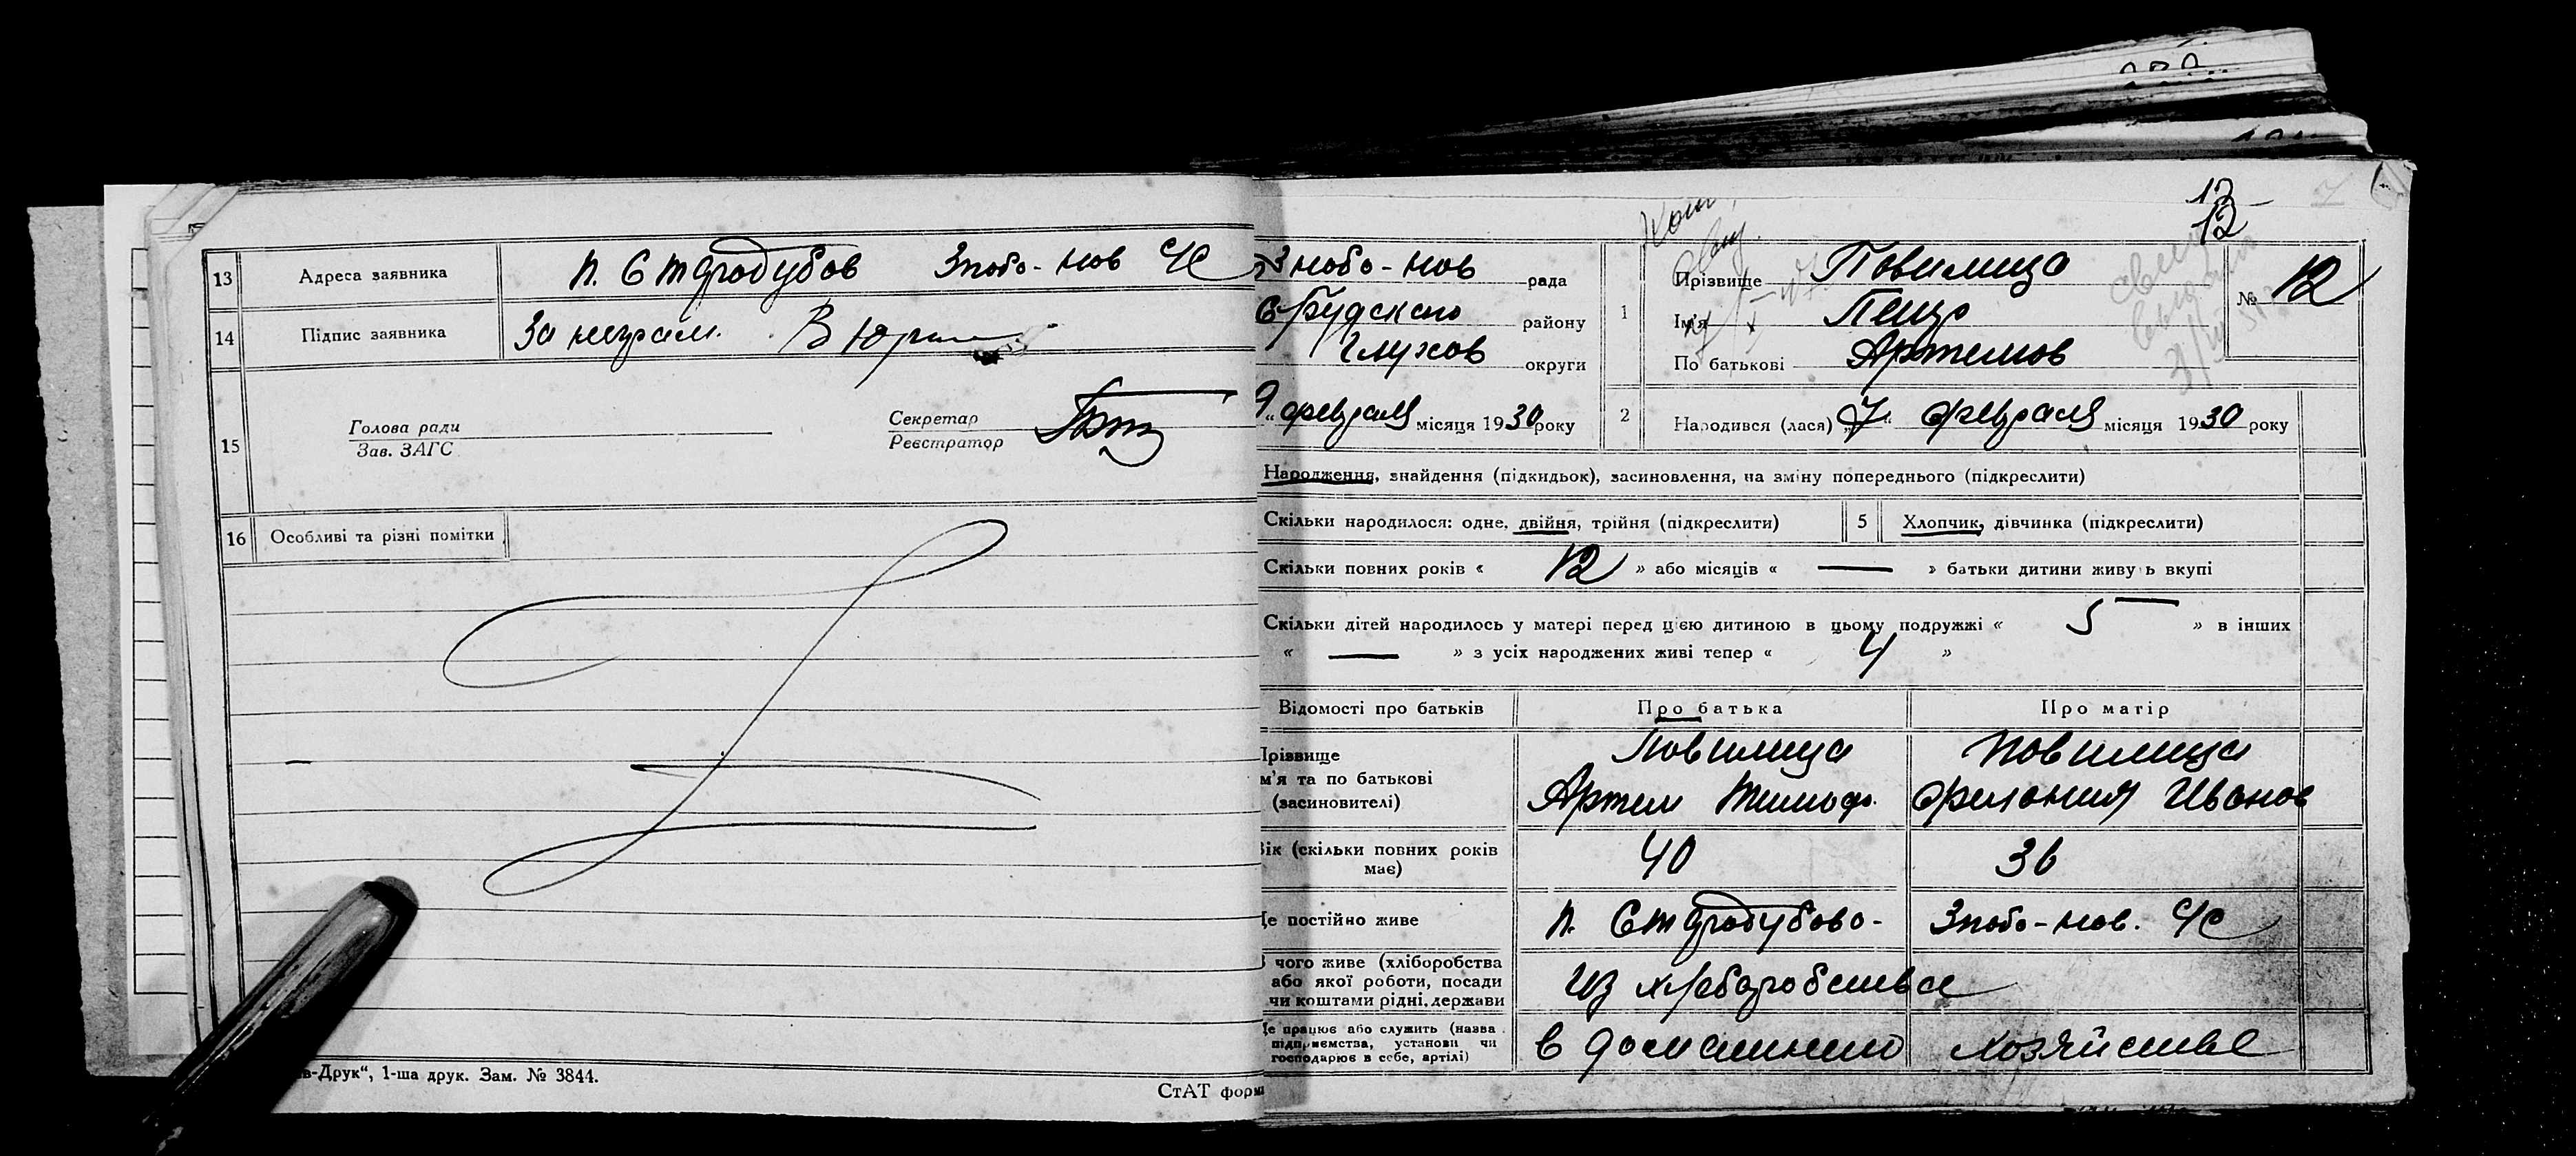 13 Адреса заявника п. Стародубов Зноб-Нов С/С
14 Підпис заявника За неграм. В Юр
15 Голова ради Зав. ЗАГС Секретар Реєстратор
16 Особливі та різні помітки
в-Друк“, 1-ша друк. Зам. № 3844.
СтАТ форм
13
12
Знобо-Нов рада
С Будского району
Глухов округи
9 „ февраля місяця 1930 року
1 Прізвище Повилица
Ім'я Петр
По батькові Артемов
№ 12
2 Народився (лася) „7“ февраля місяця 1930 року
Народження, знайдення (підкидьок), засиновлення, на зміну попереднього (підкреслити)
Скільки народилося: одне, двійня, трійня (підкреслити) 5 Хлопчик, дівчинка (підкреслити)
Скільки повних років « 12 » або місяців « — » батьки дитини живуть вкупі
Скільки дітей народилось у матері перед цією дитиною в цьому подружжі « 5 » в інших
« — » з усіх народжених живі тепер « 4 »
Відомості про батьків Про батька Про матір
Прізвище
м'я та по батькові
(засиновителі)
Повилица
Артем Тимоф.
Повилица
Фиония Иванов
Вік (скільки повних років має) 40 36
Де постійно живе п. Стародубово- Знобо-Нов. С/С
З чого живе (хліборобства
або якої роботи, посади
чи коштами рідні, держави
Из хлеборобства
Де працює або служить (назва
підприємства, установи чи
господарює в себе, артілі)
в домашнем хозяйстве